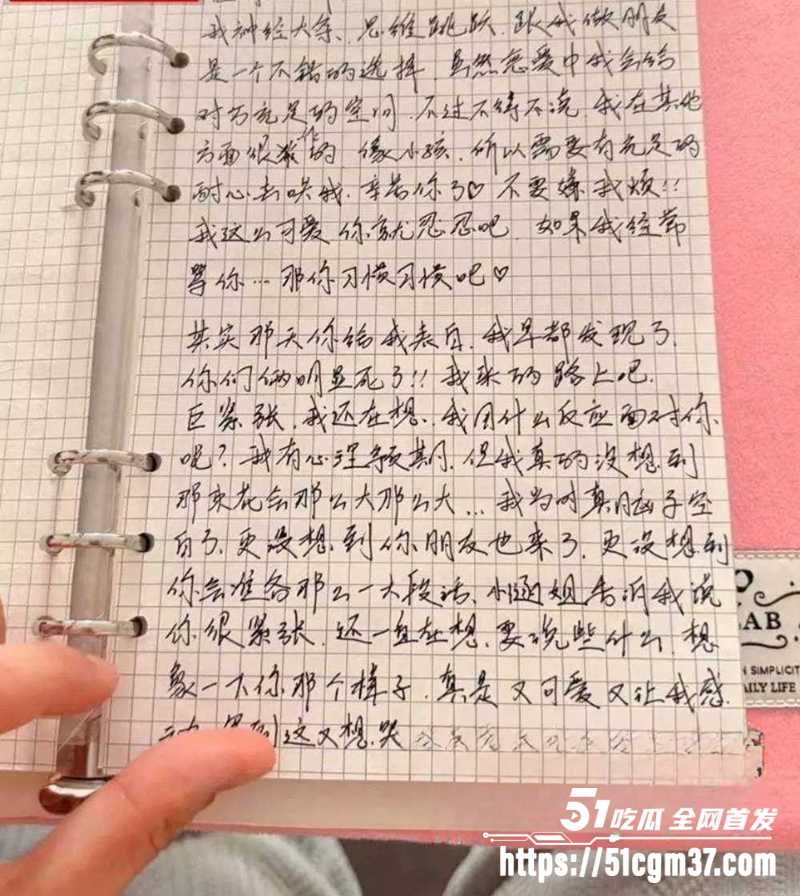 我神经大条、思维跳跃，跟我做朋友
是一个不错的选择，虽然恋爱中我会给
对方充足的空间，不过不得不说，我在其他
方面很作的 像小孩，所以需要有充足的
耐心去哄我，辛苦你了♡ 不要嫌我烦!!
我这么可爱 你就忍忍吧，如果我经常
骂你…那你习惯习惯吧♡
其实那天你给我表白，我早都发现了，
你们俩明显死了!! 我来的路上吧，
巨紧张，我还在想，我用什么反应面对你
呢？我有心理预期，但我真的没想到
那束花会那么大那么大…我当时真脑子空
白了，更没想到你朋友也来了，更没想到
你会准备那么一大段话、小涵姐告诉我说
你很紧张，还一直在想，要说些什么，想
象一下你那个样子，真是又可爱又让我感
这又想哭
LAB
SIMPLICIT
AILY LIFE
51吃瓜 全网首发
https://51cgm37.com